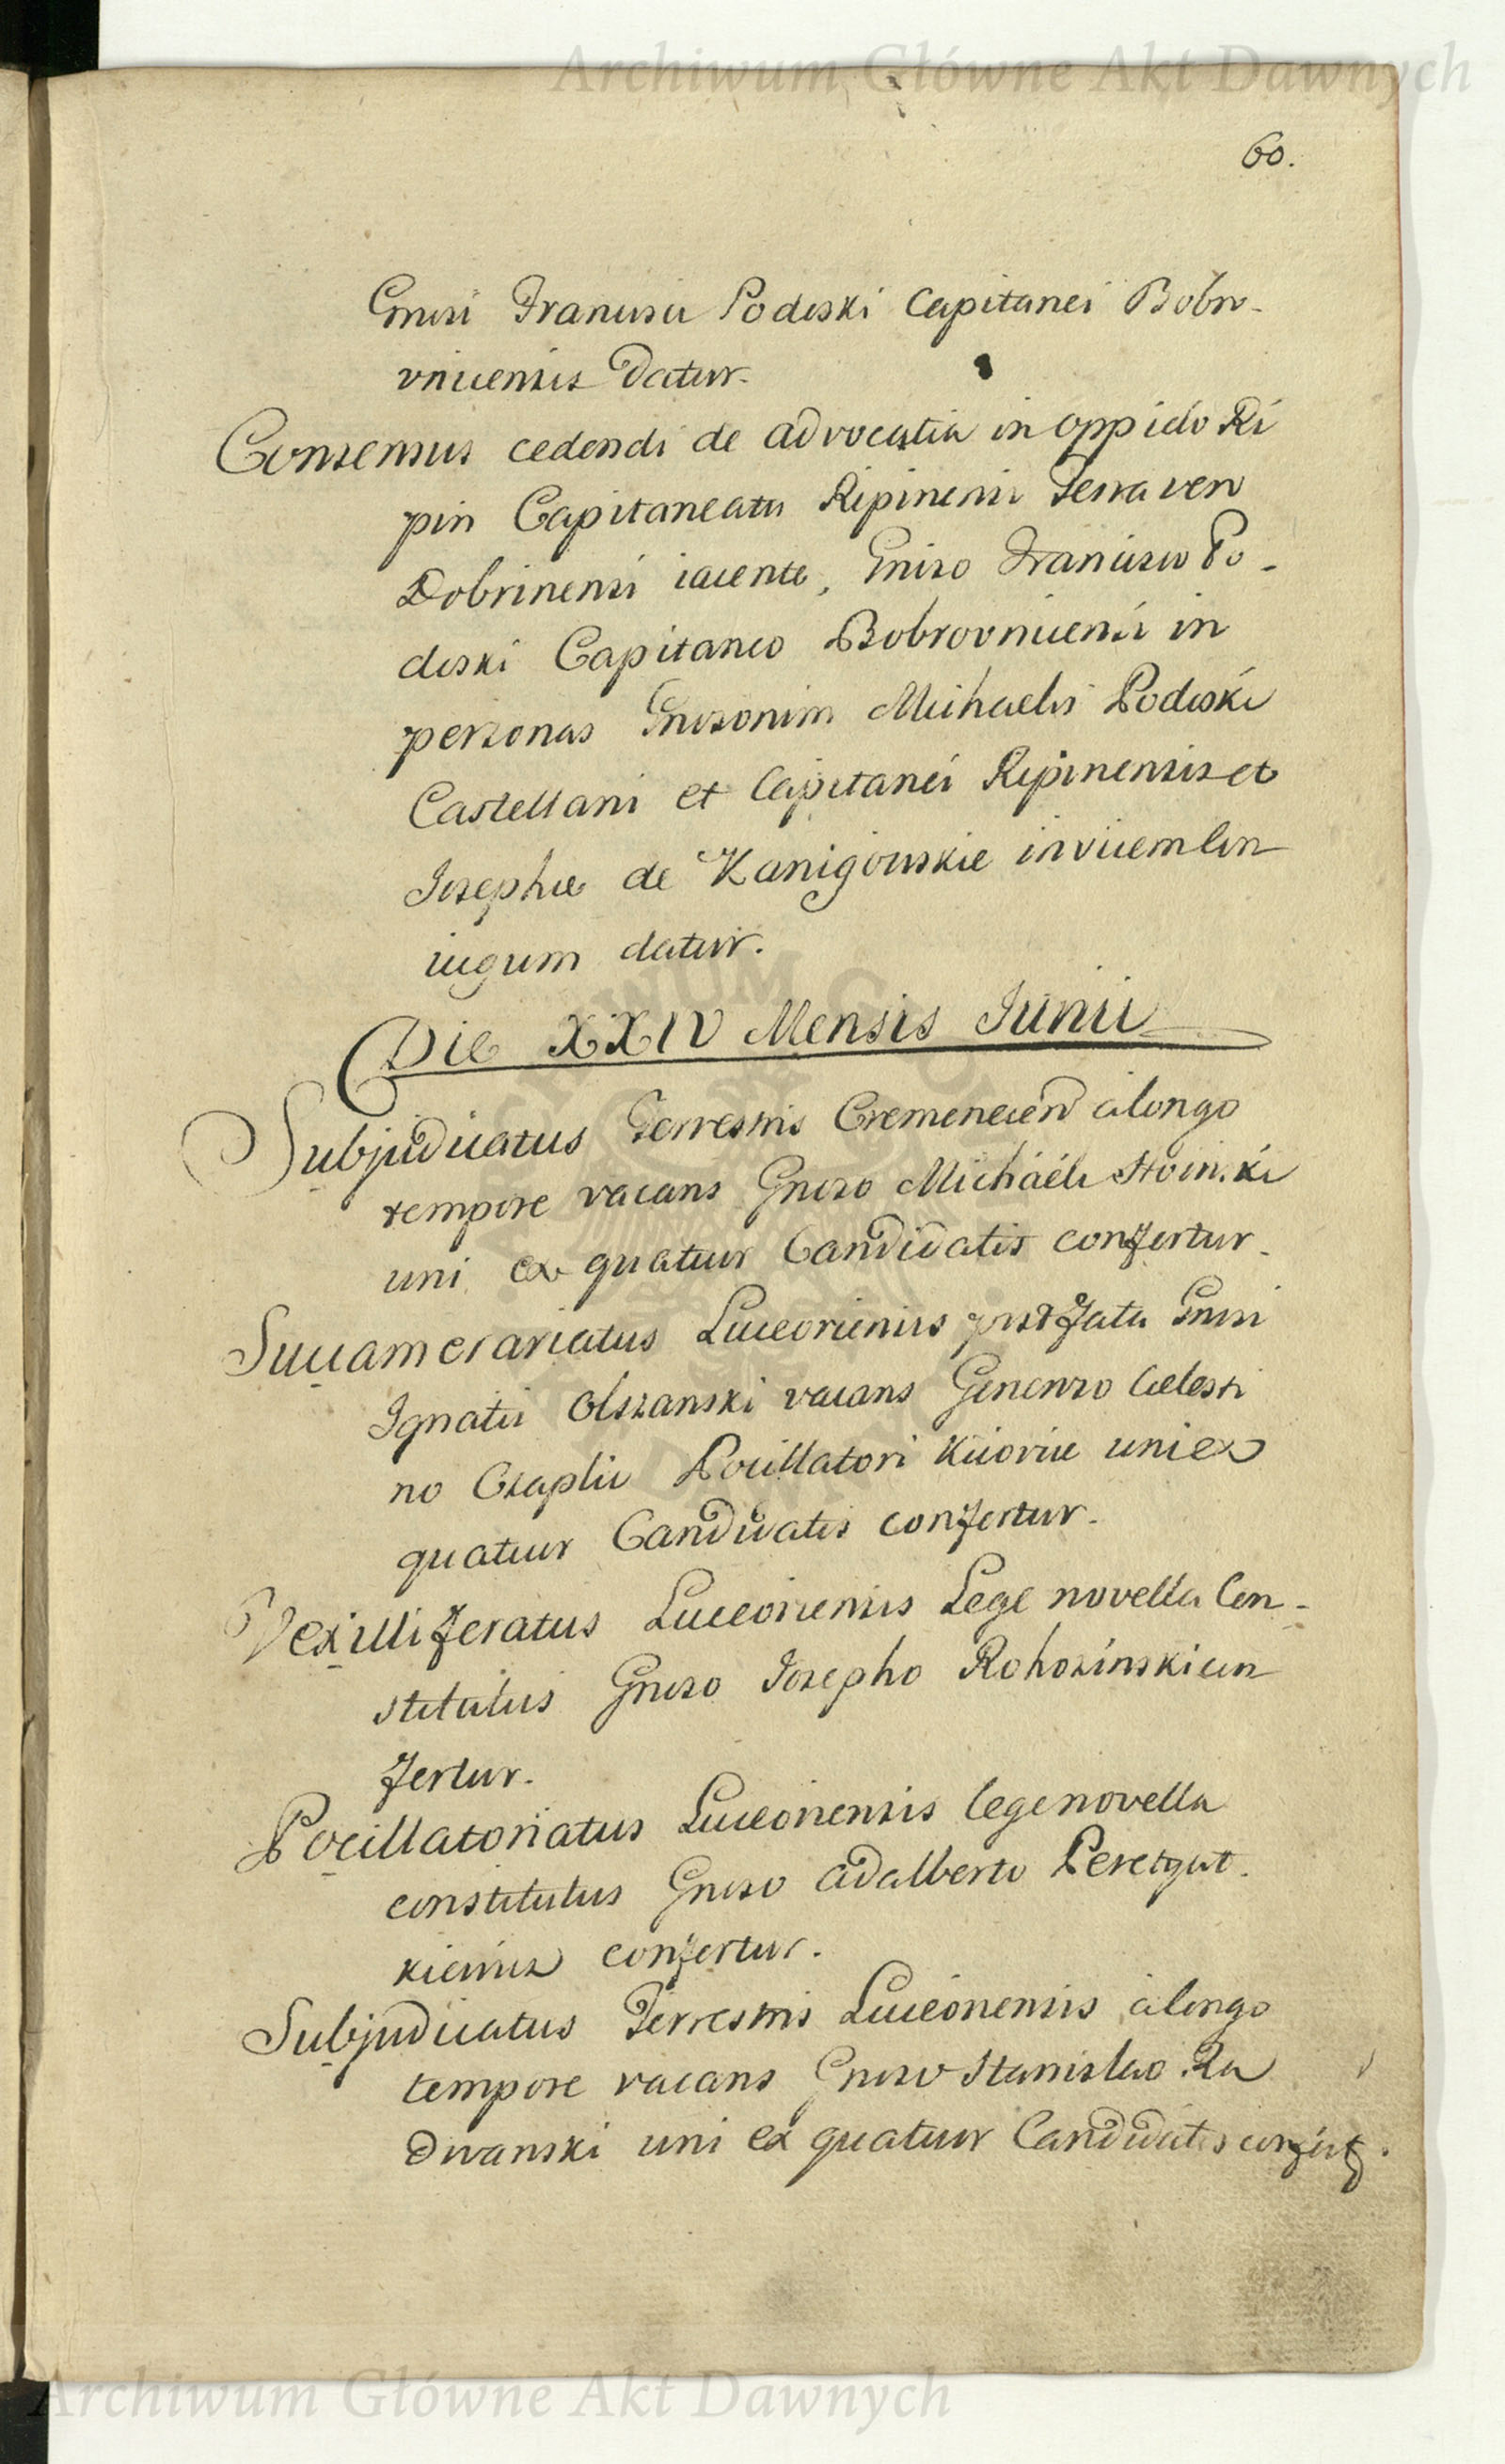 Archiwum Główne Akt Dawnych
60.
Gnosi Francisci Podoski Capitanei Bobro-
vnicensis datur.
Consensus cedendi de advocatia in oppido Ri
pin Capitaneatu Ripinensi Terra vero
Dobrinensi iacente, Gnoso Francisco Po-
doski Capitaneo Bobrovnicensi in
personas Gnosorum Michaelis Podoski
Castellani et Capitanei Ripinensis et
Josephæ de Kanigowskie invicem con
iugum datur.
Die XXIV Mensis Junii
Subjudicatus Terrestris Cremenecen a longo
tempore vacans Gnoso Michaeli Stoinski
uni ex quatuor Candidatis confertur.
Succamerariatus Luceoriensis post fata Gnosi
Ignatii Olszanski vacans Generoso Celesti
no Czaplic Pocillatori Kiioviæ uni ex
quatuor Candidatis confertur.
Vexilliferatus Luceoriensis Lege novella Con-
stitutus Gnoso Josepho Rohozinski con
fertur.
Pocillatoriatus Luceoriensis lege novella
constitutus Gnoso Adalberto Peretyat-
kiewicz confertur.
Subjudicatus Terrestris Luceoriensis a longo
tempore vacans Gnoso Stanislao Ra
dwanski uni ex quatuor Candidatis confert.
Archiwum Główne Akt Dawnych